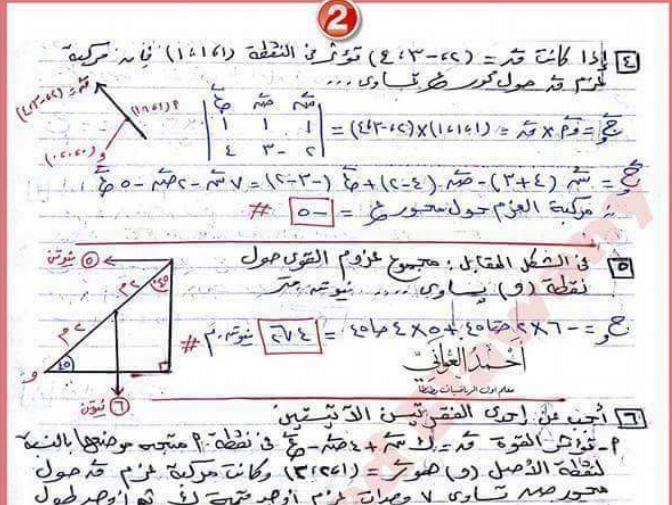 2
٤ إذا كانت قَ = (٢، -٣، ٤) تؤثر فى النقطة (١، ١، ١) فإن مركبة
عزم قَ حول محور ع تساوى ....
قَ = (٢، -٣، ٤)
م (١، ١، ١)
و (٠، ٠، ٠)
ج = وم × قَ = (١، ١، ١) × (٢، -٣، ٤) =
سَ صَ عَ
١ ١ ١
٢ -٣ ٤
ج = سَ (٤ + ٣) - صَ (٤ - ٢) + عَ (-٣ - ٢) = ٧ سَ - ٢ صَ - ٥ عَ
∴ مركبة العزم حول محور ع = -٥ #
٥ فى الشكل المقابل: مجموع عزوم القوى حول
نقطة (و) يساوى .... نيوتن. متر
٥ نيوتن
٤٥°
٢ م
٢ م
و
٤٥
٦ نيوتن
ج و = -٦ × ٢ حتا ٤٥ + ٥ × ٤ حا ٤٥ = ٤√٢ نيوتن.م #
أحمد الغوانى
معلم أول الرياضيات
٦ أجب عن إحدى الفقرتين الآتيتين
٢- تؤثر القوة قَ = ك سَ + ٤ صَ - عَ فى نقطة م متجه موضعها بالنسبة
لنقطة الأصل (و) هو مَ = (١، ٢، ٣) وكانت مركبة عزم قَ حول
محور صَ تساوى ٧ وحدات عزم أوجد قيمة ك ثم أوجد طول